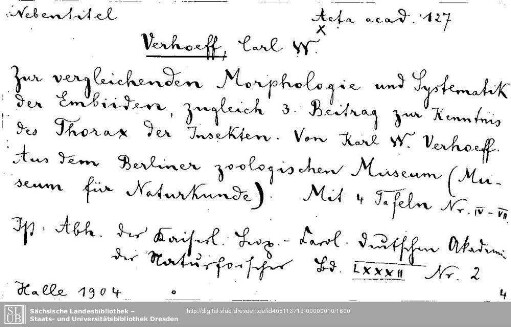 Nebentitel Acta acad. 127
x
Verhoeff, Carl W.
Zur vergleichenden Morphologie und Systematik
der Embiiden, zugleich 3. Beitrag zur Kenntnis
des Thorax der Insekten. Von Karl W. Verhoeff.
Aus dem Berliner zoologischen Museum (Mu-
seum für Naturkunde). Mit 4 Tafeln Nr. IV-VII
Abh. der Kaiserl. Leop.-Carol. deutschen Akademie
der Naturforscher Bd. LXXXII Nr. 2
Halle 1904 4
SLUB
Sächsische Landesbibliothek –
Staats- und Universitätsbibliothek Dresden